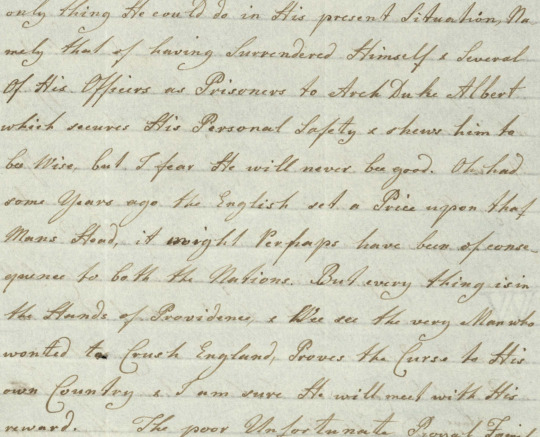 only thing He could do in His present Situation, Na
mely that of having Surrendered Himself & Several
Of His Officers as Prisoners to Arch Duke Albert
which secures His Personal Safety & shews him to
be Wise, but I fear He will never be good. Oh had
some Years ago the English set a Price upon that
Mans Head, it might Perhaps have been of conse-
quence to both the Nations. But every thing is in
the Hands of Providence, & Wee see the very Man who
wonted to Crush England, Proves the Curse to His
own Country & I am sure He will meet with His
reward. The poor Unfortunate